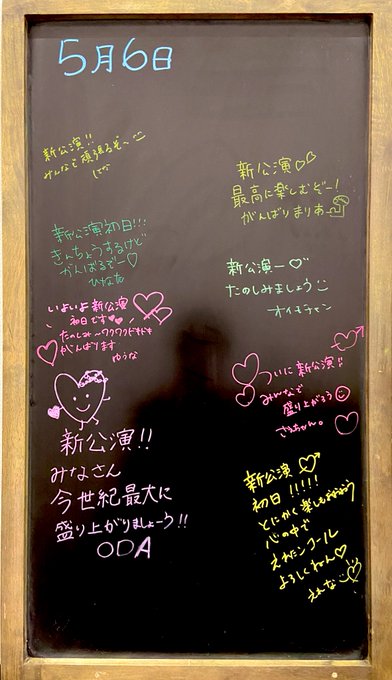 5月6日
新公演!!
みんなで頑張るぞ〜
はな
新公演
最高に楽しむぞー!
がんばりまりあー
新公演初日!!!
きんちょうするけど
がんばるぞー♡
ひなた
新公演ー♡
たのしみましょう
オイモチャン
いよいよ新公演
初日です♥♥
たのしみ〜ワクワクドキドキ
がんばります
ゆうな
ついに新公演!!
みんなで
盛り上がろう
さきちゃん。
新公演!!
みなさん
今世紀最大に
盛り上がりましょーう!!
ODA
新公演
初日!!!!!
とにかく楽しもすがよう
心の中で
えれたんコール
よろしくねん♡
えれな